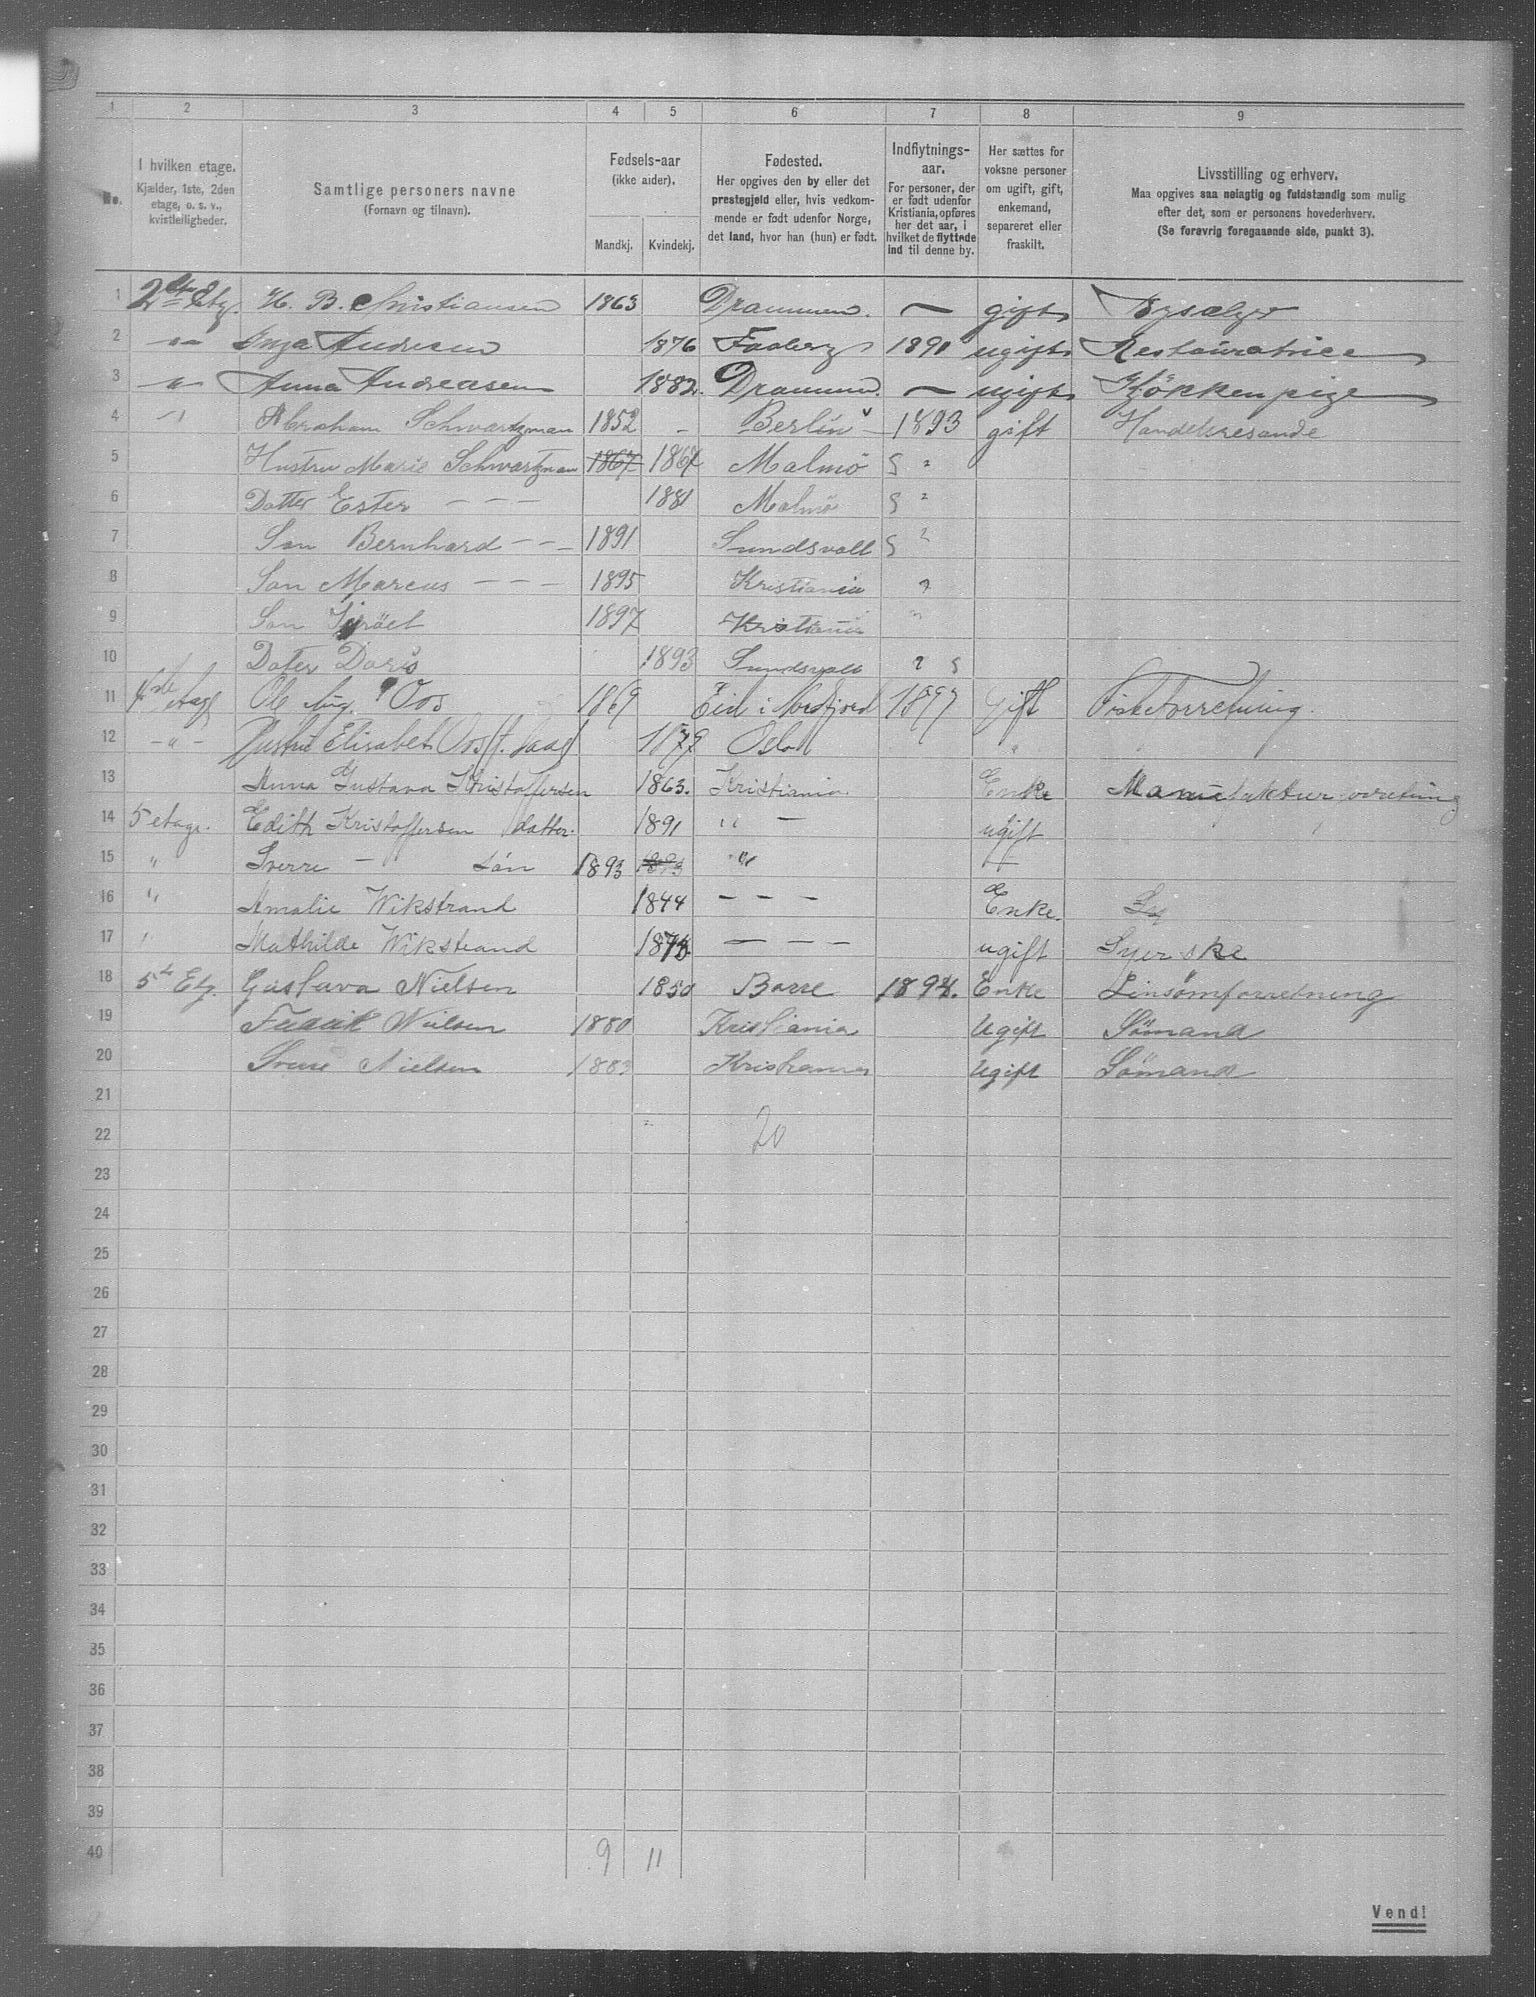 1 2 3 4 5 6 7 8 9
No.
I hvilken etage.
Kjælder, 1ste, 2den
etage, o. s. v.,
kvistleiligheder.
Samtlige personers navne
(Fornavn og tilnavn).
Fødsels-aar
(ikke aider).
Mandkj. Kvindekj.
Fødested.
Her opgives den by eller det
prestegjeld eller, hvis vedkom-
mende er født udenfor Norge,
det land, hvor han (hun) er født.
Indflytnings-
aar.
For personer, der
er født udenfor
Kristiania, opføres
her det aar, i
hvilket de flyttede
ind til denne by.
Her sættes for
voksne personer
om ugift, gift,
enkemand,
separeret eller
fraskilt.
Livsstilling og erhverv.
Maa opgives saa nøiagtig og fuldstændig som mulig
efter det, som er personens hovederhverv.
(Se forøvrig foregaaende side, punkt 3).
1 2den Etg. H. B. Christiansen 1863 Drammen. — gift
2 —"— Inga Andresen 1876 Faaberg 1891 ugift Restauratrice
3 —"— Anna Andreasen 1882. Drammen. — ugift Kjøkkenpige
4 —" Abraham Schwartzman 1852 - Berlin 1893 gift Handelsresande
5 Hustru Marie Schwartzman 1867 1867 Malmö S "
6 Datter Ester — — — 1881 Malmö S "
7 Son Bernhard — — — 1891 Sundsvall S "
8 Son Marcus — — — 1895 Kristiania "
9 Son Isröel 1897 Kristiania "
10 Dater Doris 1893 Sundsvall " S
11 4de Etage Ole Aug. Oos 1869 Eid i Nordfjord 1897 Gift Fisketorretning.
12 —"— Hustru Elisabet Oos f. 1879 Oslo "
13 Anna Gustava Kristoffersen 1863. Kristiania Enke Manufakturforretning
14 5 etage. Edith Kristoffersen datter. 1891 " — ugift
15 " Sverre — søn 1893 1893 "
16 " Amalie Wikstrand 1844 — — — Enke.
17 " Mathilde Wikstrand 1878. — — — ugift Syerske
18 5te Etg. Gustava Nielsen 1850 Borre 1894. Enke Linsømforretning
19 Fredrik Nielsen 1880 Kristiania Ugift Sömand
20 Sverre Nielsen 1883 Kristiania Ugift Sömand
21
22 20
23
24
25
26
27
28
29
30
31
32
33
34
35
36
37
38
39
40 9 11
Vend!